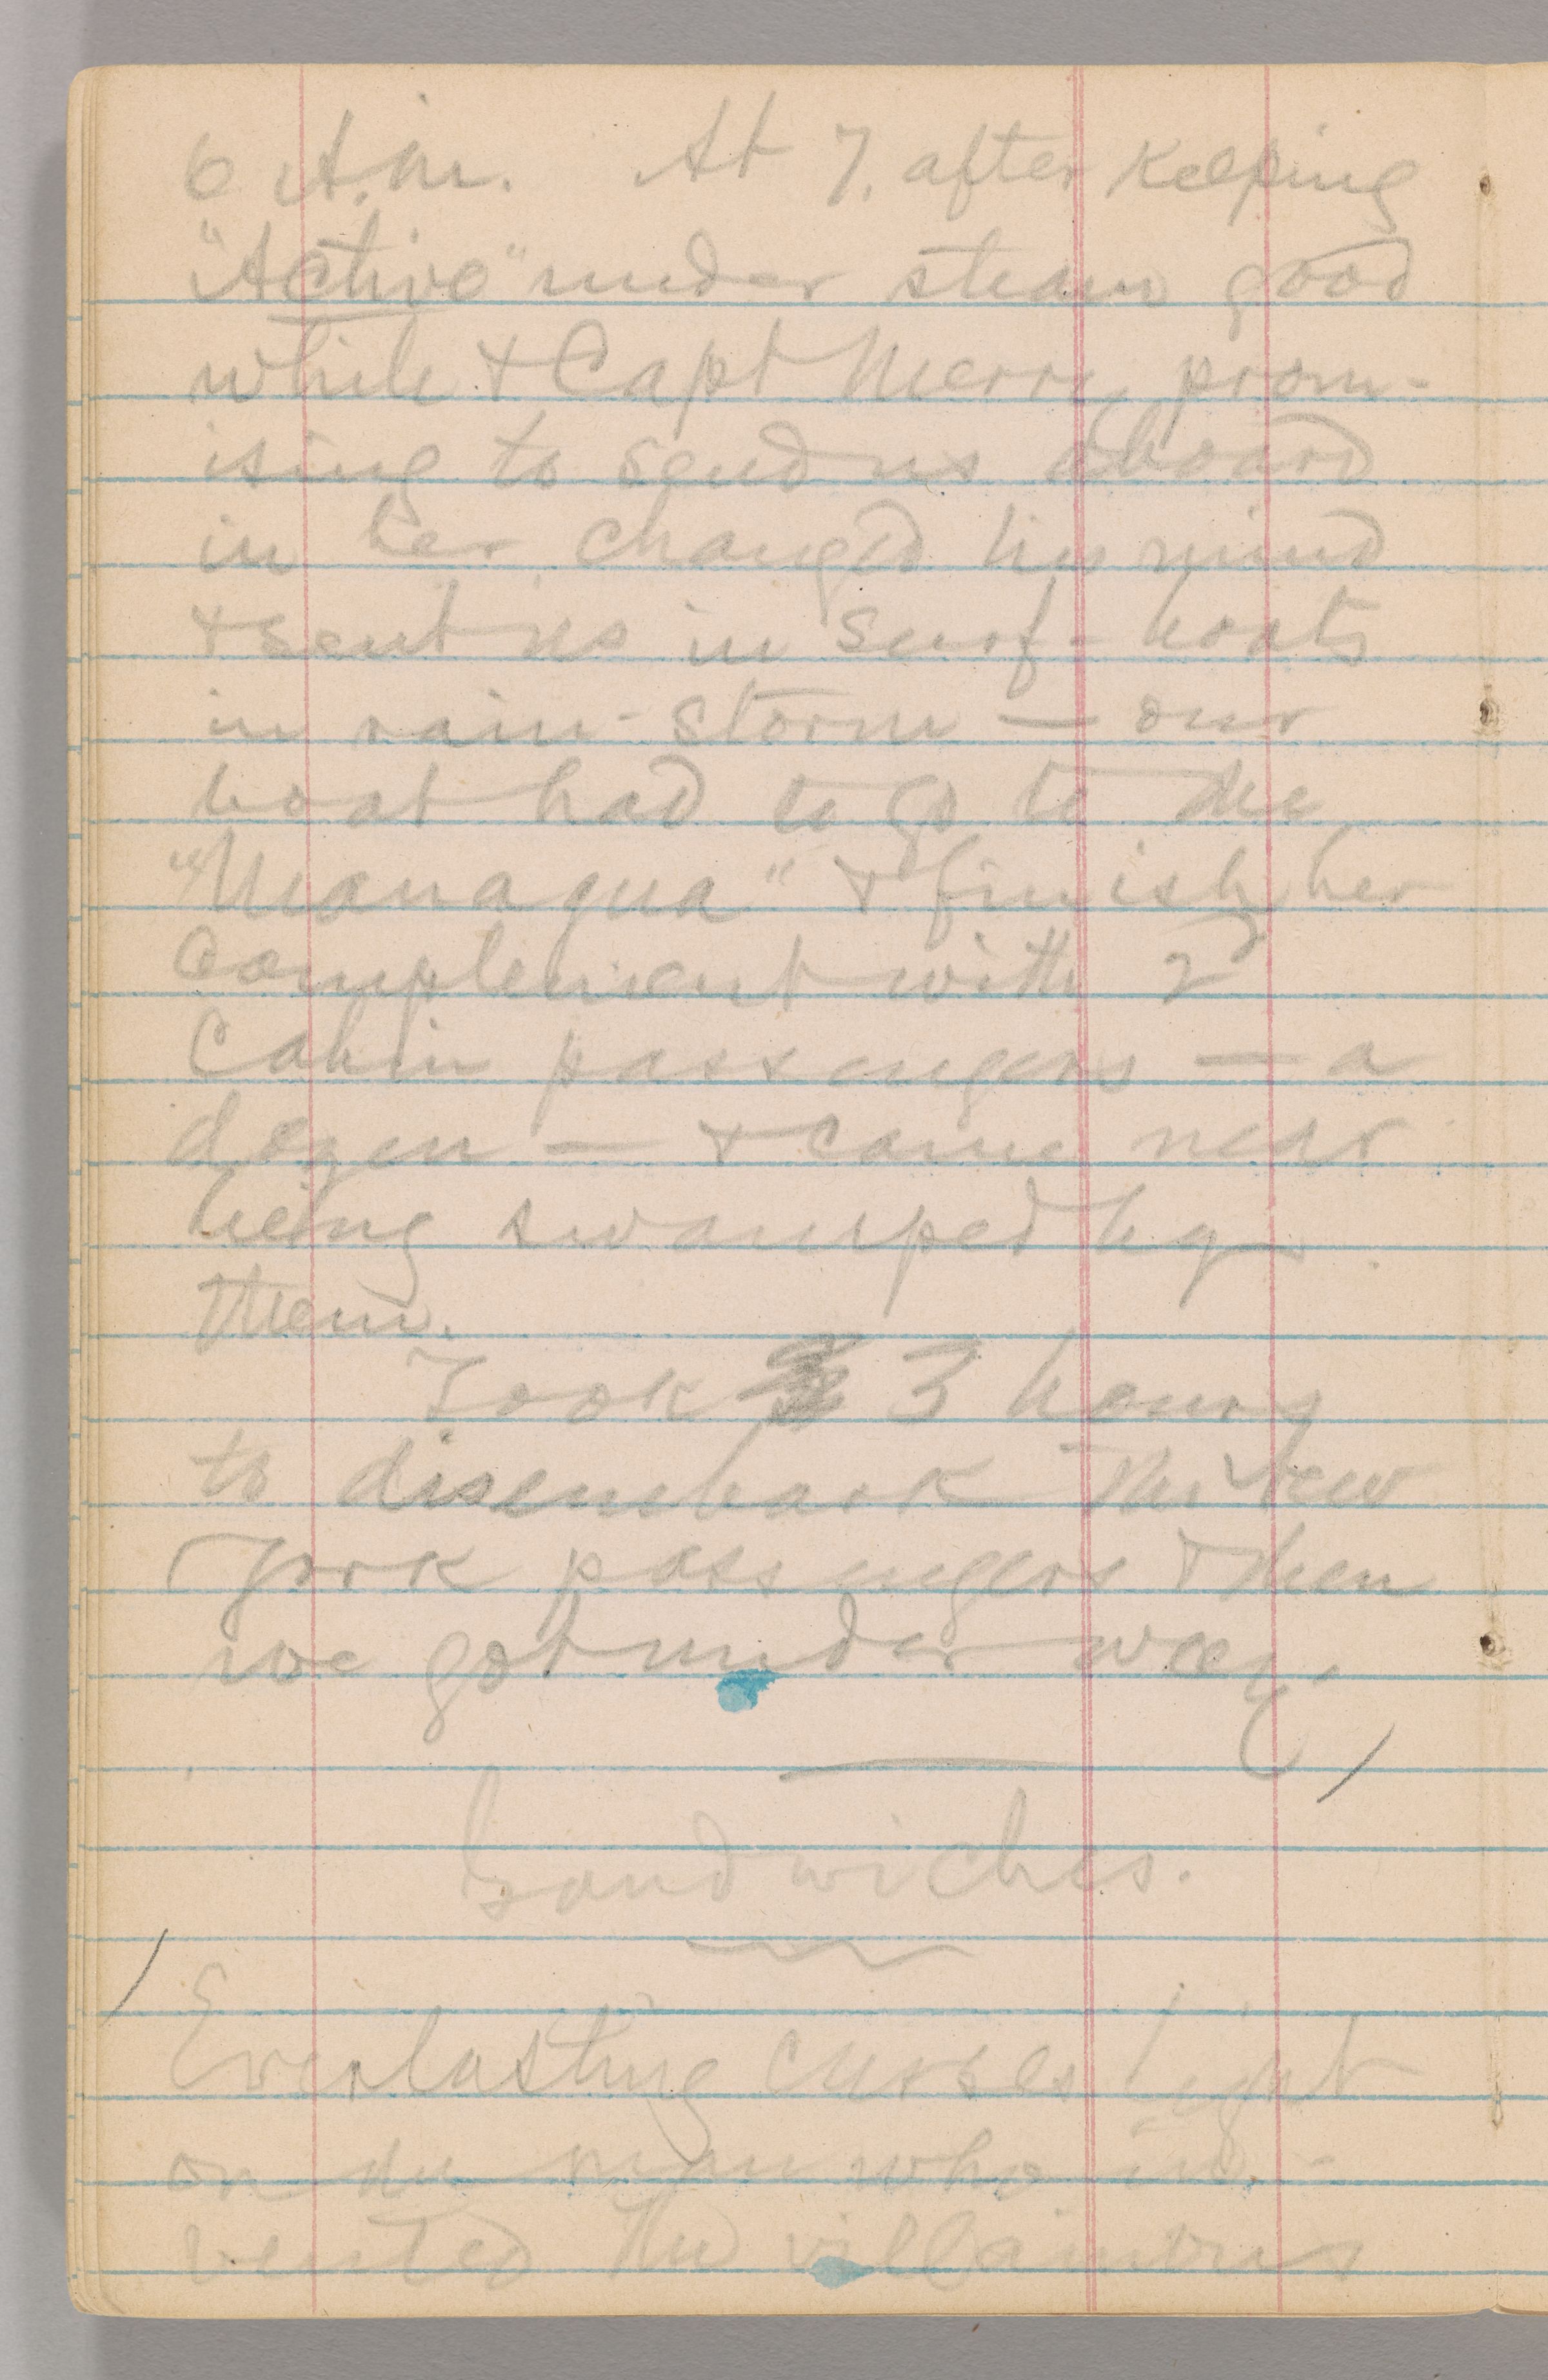 6 A.M. At 7, after keeping
"Active" under steam good
while & Capt Merry prom-
ising to send us aboard
in her changed his mind
& sent us in surf-boats
in rain-storm — our
boat had to go to the
"Managua" & finish her
complement with 2
cabin passengers — a
dozen — & came near
being swamped by
them.
Took 3 hours
to disembark the New
York passengers & then
we got under way.
Sandwiches.
Everlasting curses light
on the man who in-
vented the villainous